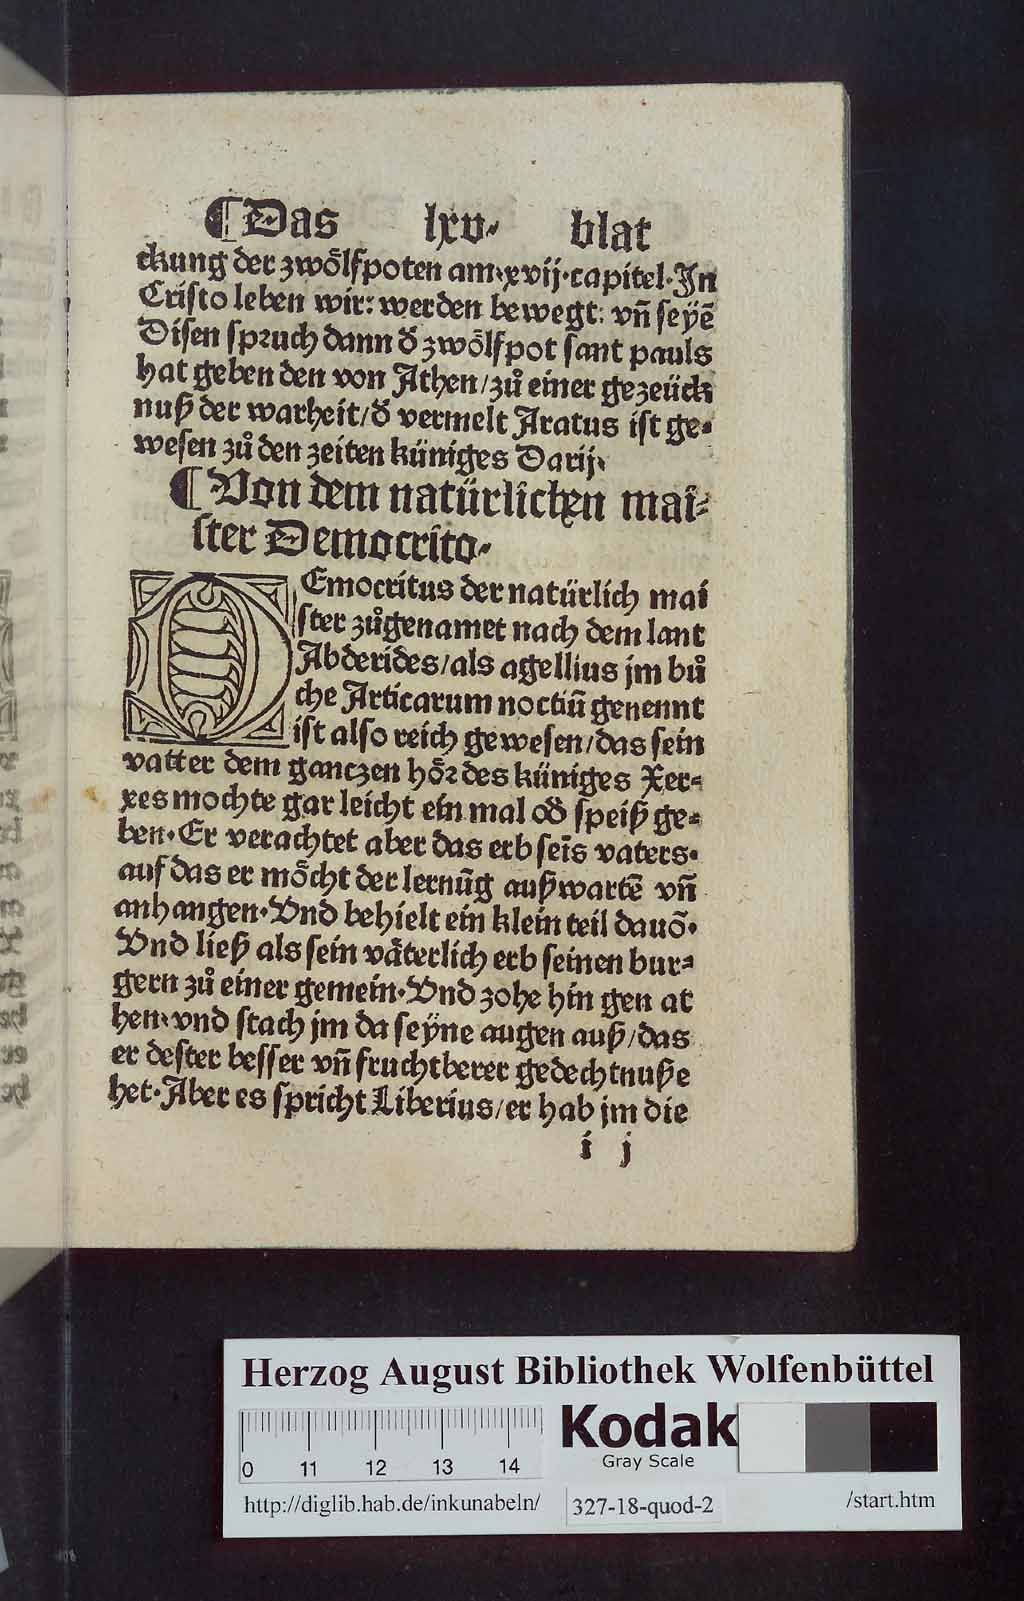 ¶Das lxv. blat
ckung der zwoͤlfpoten am.xvij.capitel.In
Cristo leben wir: werden bewegt: vñ seÿẽ
Disen spꝛuch dann ð zwoͤlfpot sant pauls
hat geben den von Athen/zů einer gezeück
nuß der warheit/ð vermelt Aratus ist ge⸗
wesen zů den zeiten küniges Darij.
¶Von dem natürlichen mai⸗
ster Democrito.
DEmocritus der natürlich mai
ster zůgenamet nach dem lant
Abderides/als agellius jm bů
che Articarum noctiū genennt
ist also reich gewesen/das sein
vatter dem ganczen hoͤꝛ des küniges Xer⸗
xes mochte gar leicht ein mal oð speiß ge⸗
ben.Er verachtet aber das erb seīs vaters.
auf das er moͤcht der lernūg außwartē vñ
anhangen.Vnd behielt ein klein teil dauõ.
Vnd ließ als sein vaͤterlich erb seinen bur⸗
gern zů einer gemein.Vnd zohe hin gen at
hen.vnd stach jm da seÿne augen auß/das
er dester besser vñ fruchtberer gedechtnuße
het.Aber es spricht Liberius/er hab jm die
i j
Herzog August Bibliothek Wolfenbüttel
Kodak
Gray Scale
0 11 12 13 14
http://diglib.hab.de/inkunabeln/ 327-18-quod-2 /start.htm